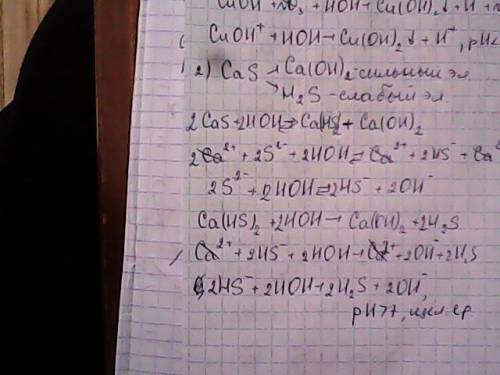 CuOH⁺ + HOH → Cu(OH)₂↓ + H⁺, pH<
2) CaS Ca(OH)₂-сильный эл.
H₂S-слабый эл.
2CaS+2HOH⇄Ca(HS)₂+Ca(OH)₂
2Ca²⁺+2S²⁻+2HOH⇄Ca²⁺+2HS⁻+Ca²
2S²⁻+2HOH⇄2HS⁻+2OH⁻
Ca(HS)₂+2HOH→Ca(OH)₂+2H₂S
Ca²⁺+2HS⁻+2HOH→Ca²⁺+2OH⁻+2H₂S
2HS⁻+2HOH→2H₂S+2OH⁻,
pH>7, щел.ср.